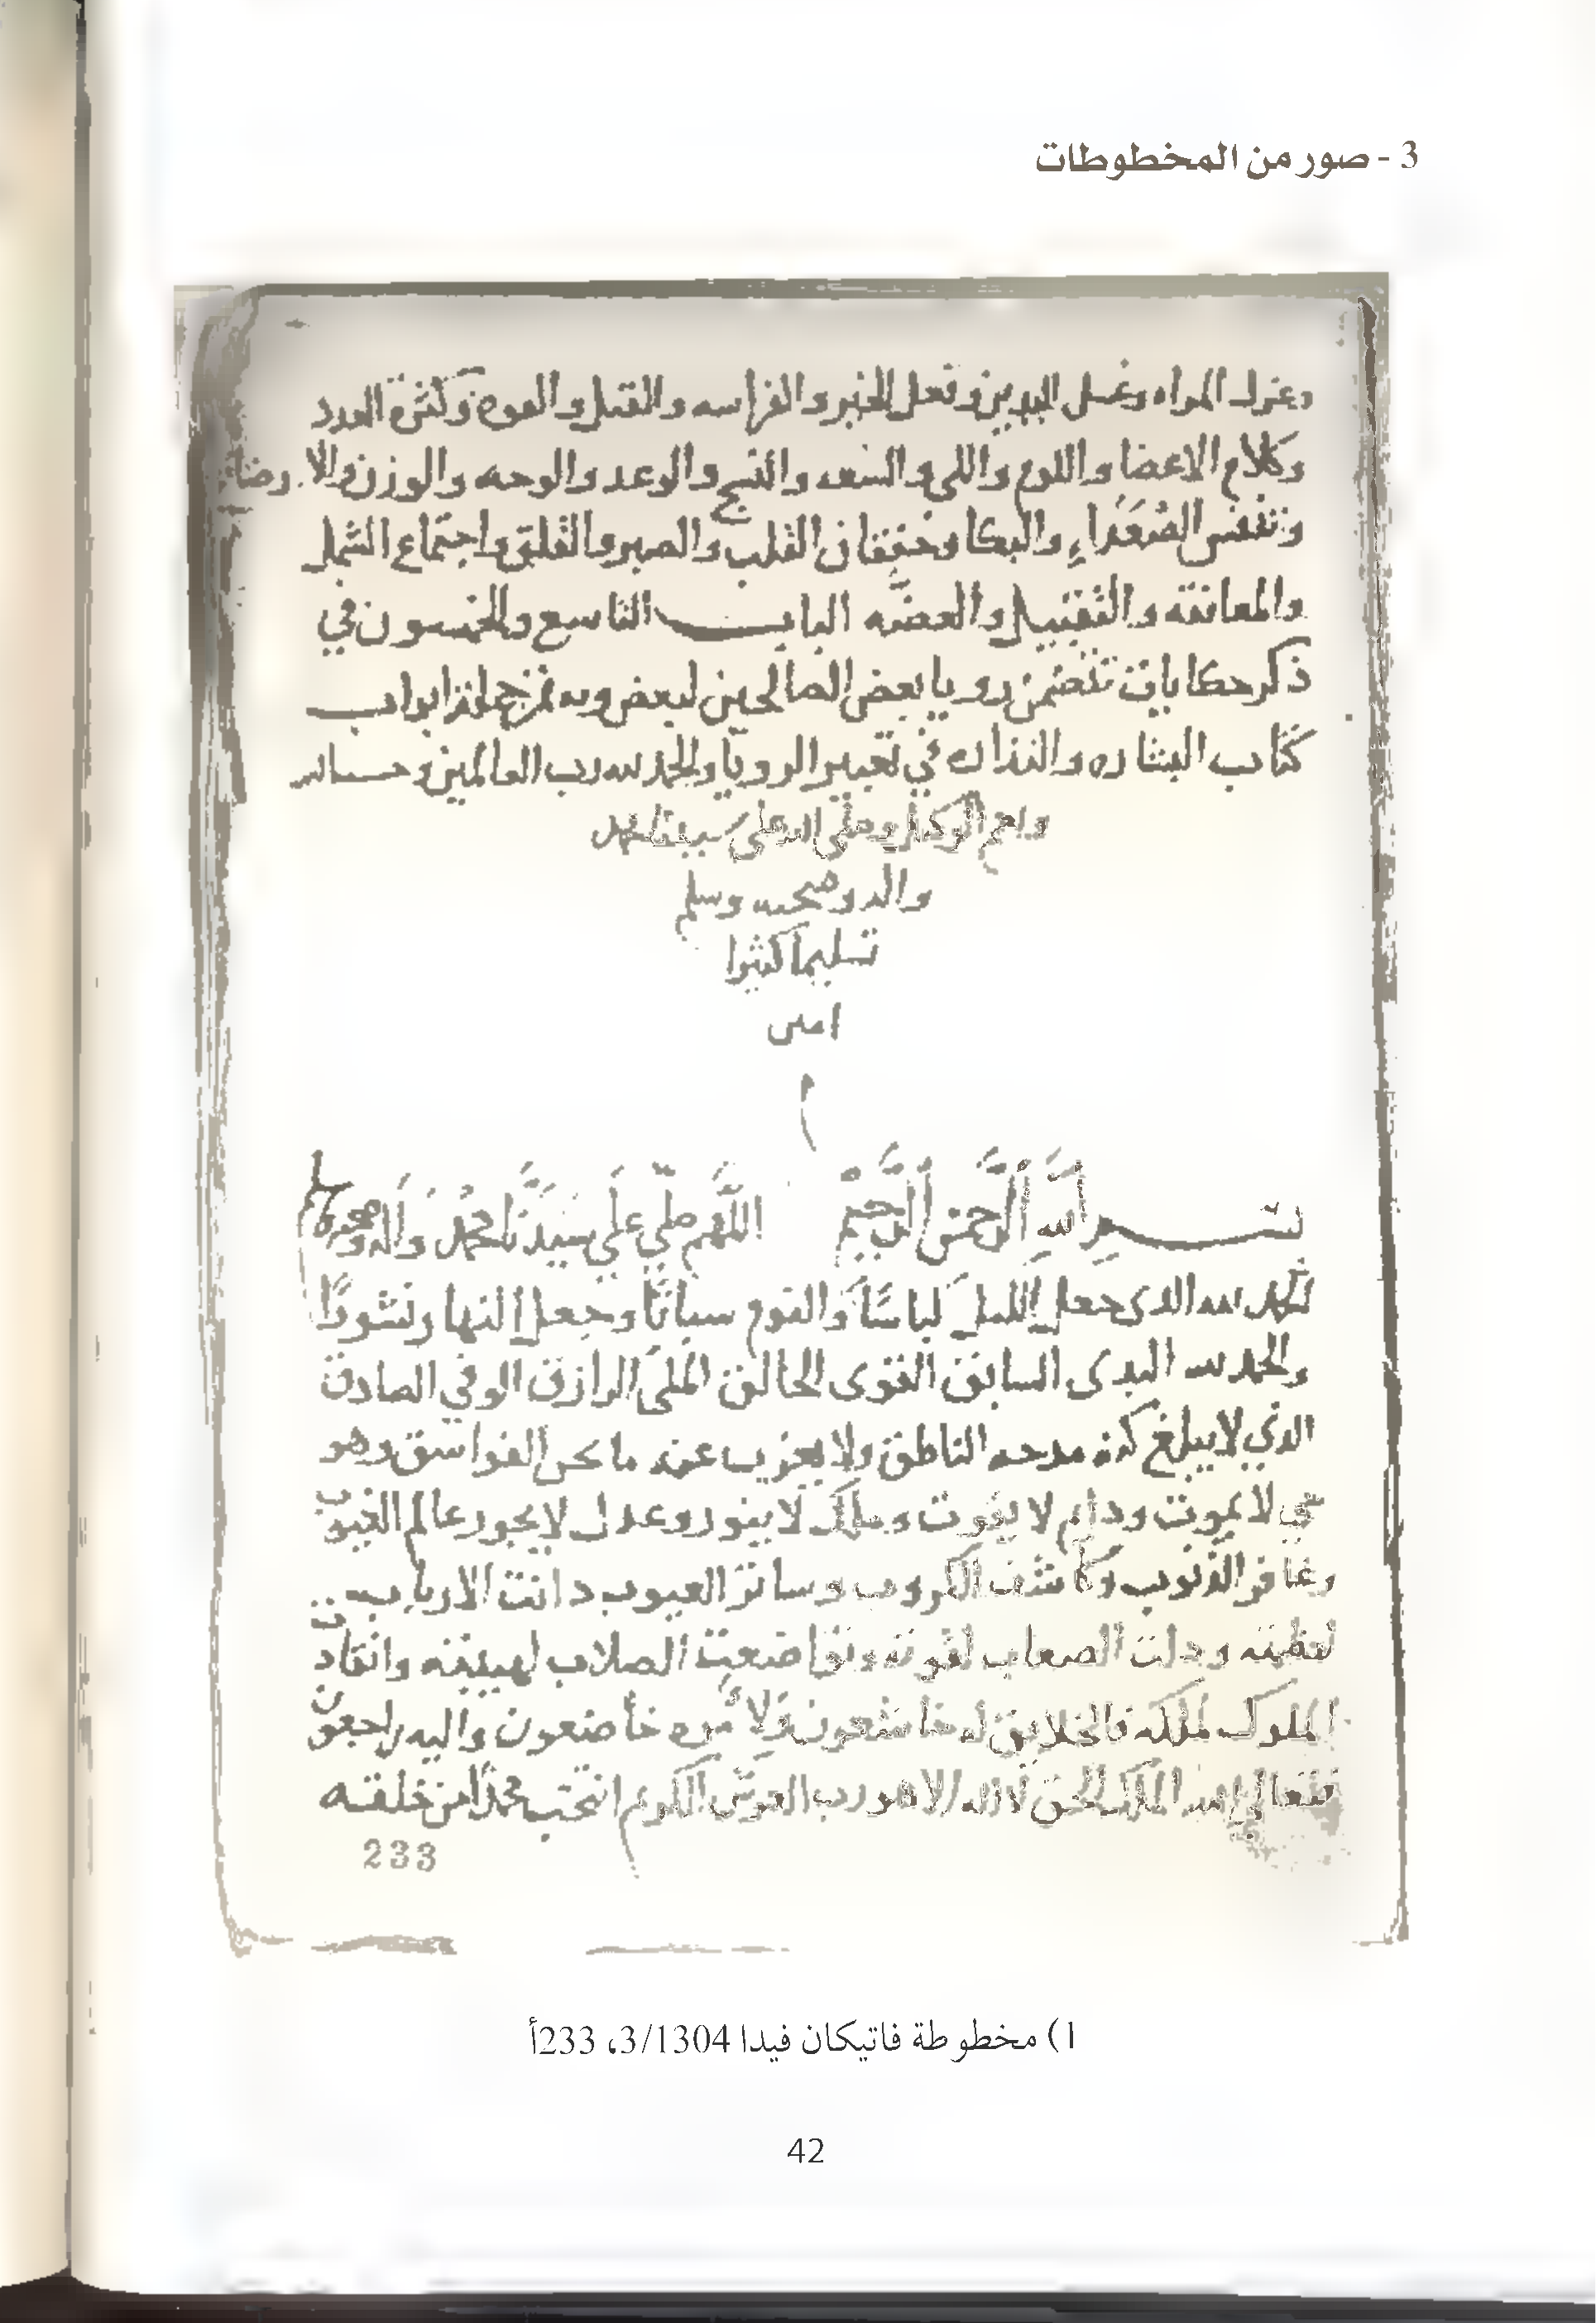 3 - صور من المخطوطات
وعزل المراه وغسل اليدين وفعل الخير والفراسه والقتل والقوه وكثرة العدد
وكلام الاعضا واللوم واللي والسعه والنسج والوعد والوحه والوزن والارضا
وتنفس الصُعَدَاءِ والبكا وخفقان القلب والصبر والقلق واجتماع الشمل
والمعانقه والتقبيل والعضه الباب التاسع والخمسون في
ذكر حكايات تتضمن رويا بعض الصالحين لبعض وبه تمزجملة ابواب
كتاب البشاره والنذاره في تعبير الرويا والحمد لله رب العالمين وحسبنا الله
ونعم الوكيل وصلى الله على سيدنا محمد
واله وصحبه وسلم
تسليما كثيرا
امين
بسم اللهِ الرَّحمن الرَّحيم اللَّهم صلي علي سَيدَنَا محمد وَاله وصحبه
الحمد لله الدى جعل الليلَ لباسًا وَالنوم سباتًا وجعل النهار نشورًا
والحمد لله البدى السابق القوى الخالق الملى الرازق الوفي الصادق
الذي لا يبلغ كنه مدحه الناطق ولا يعزب عنه ما تحن الغواسق وهو
حي لا يموت ودايم لا يفوت وملك لا يبور وعدل لا يجور عالم الغيوب
وغافر الذنوب وكاشف الكروب وساتر العيوب دانت الارباب
لعظمته ودلت الصعاب لقوته وتواضعت الصلاب لهيبته وانقادت
الملوك لملكه فالخلايق له خاشعون ولامره خاضعون واليه راجعون
فتعالى الله الملك الحق لا اله الا هو رب العرش الكريم انتخب محمدًا من خلقه
233
1) مخطوطة فاتيكان فيدا 3/1304، 233أ
42